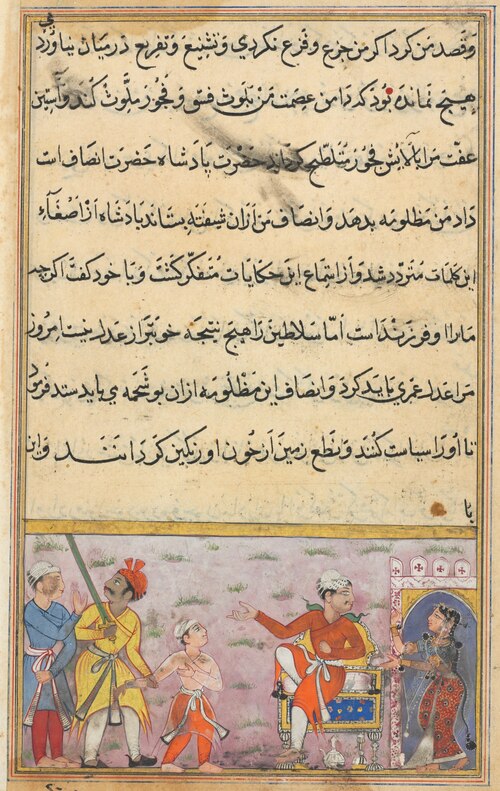 وقصد من کرد اکر من جزع و فزع نکردی و تشنیع و تقریع در میان نیاوردی
هیچ نمانده بود که دامن عصمت من بلوث فسق و فجور ملوث کند و آستین
عفت مرا بآلایش فجور متلطخ کرداند حضرت پادشاه حضرت انصاف است
داد من مظلومه بدهد و انصاف من ازان شیفته بستاند پادشاه از اصغاء
این کلمات متردد شد و از استماع این حکایات متفکر کشت و با خود کفت اکرچه
مارا او فرزند است اما سلاطین را هیچ نتیجه خوبتر از عدل نیست امروز
مرا عدل عمری باید کرد و انصاف این مظلومه ازان بوشحمه می باید ستد فرمود
تا او را سیاست کنند و نطع زمین از خون او رنکین کردانند و این
با